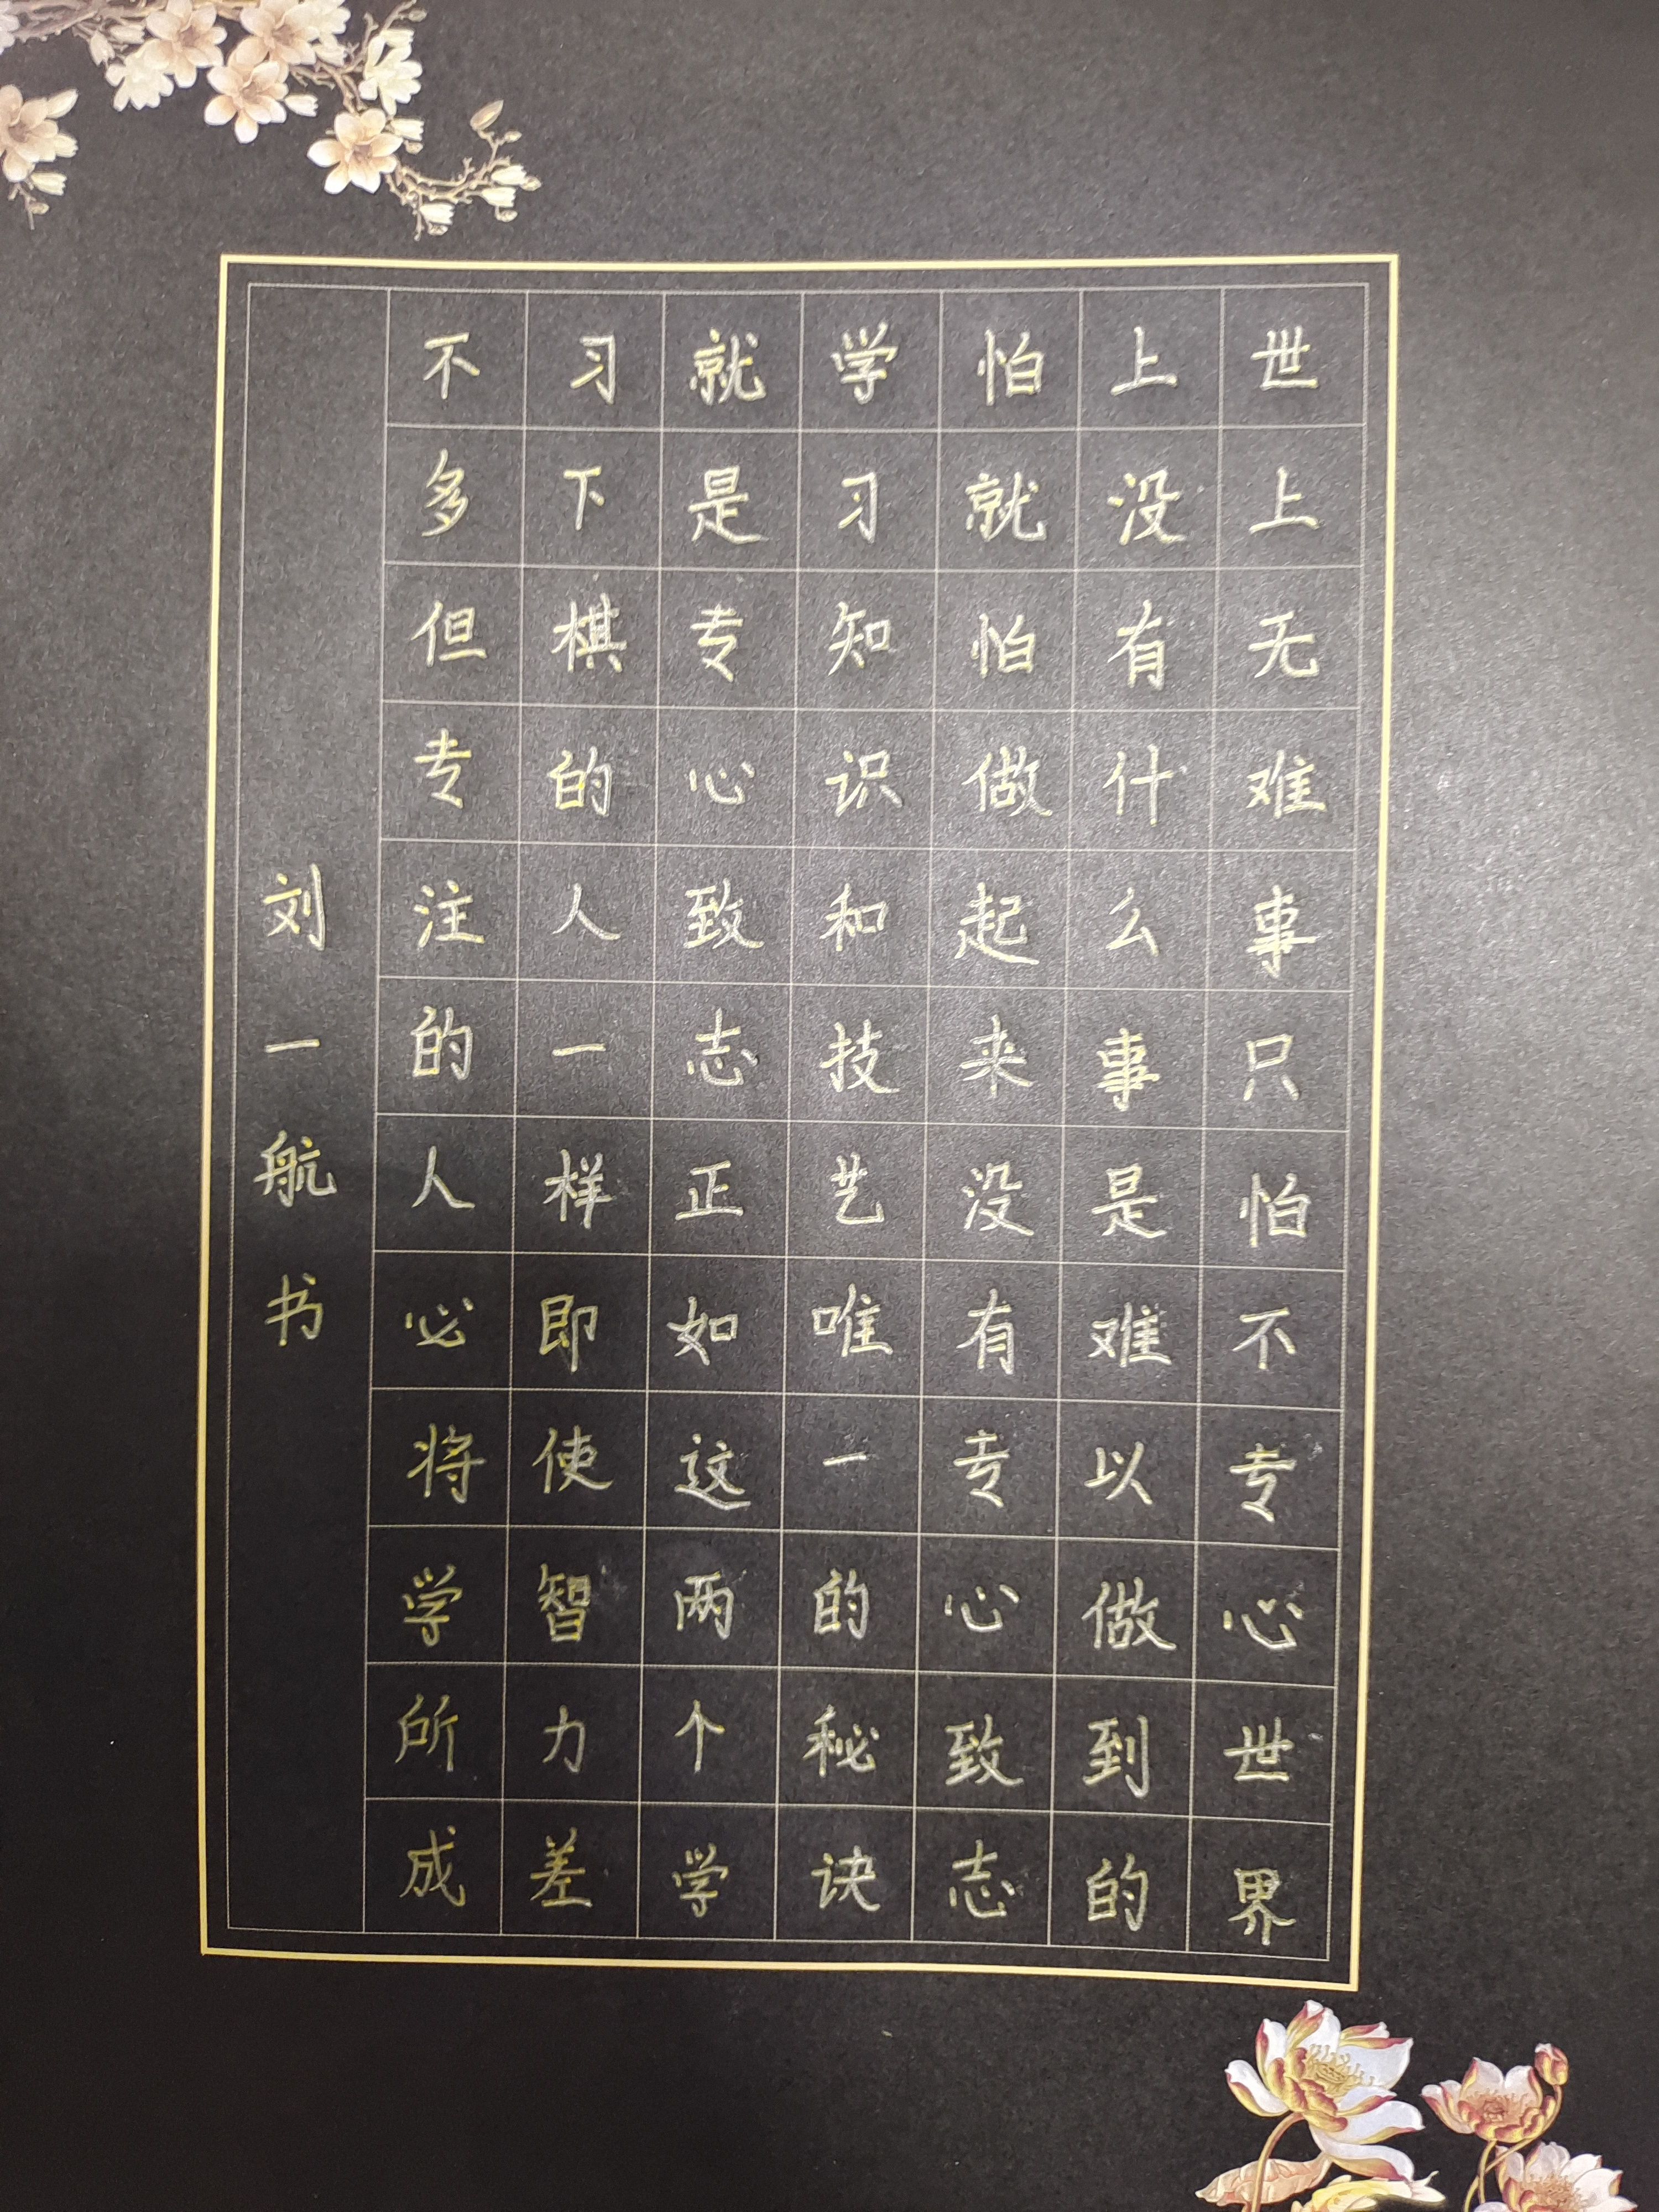 世上无难事只怕不专心世界
上没有什么事是难以做到的
怕就怕做起来没有专心致志
学习知识和技艺唯一的秘诀
就是专心致志正如这两个学
习下棋的人一样即使智力差
不多但专注的人必将学所成
刘一航书